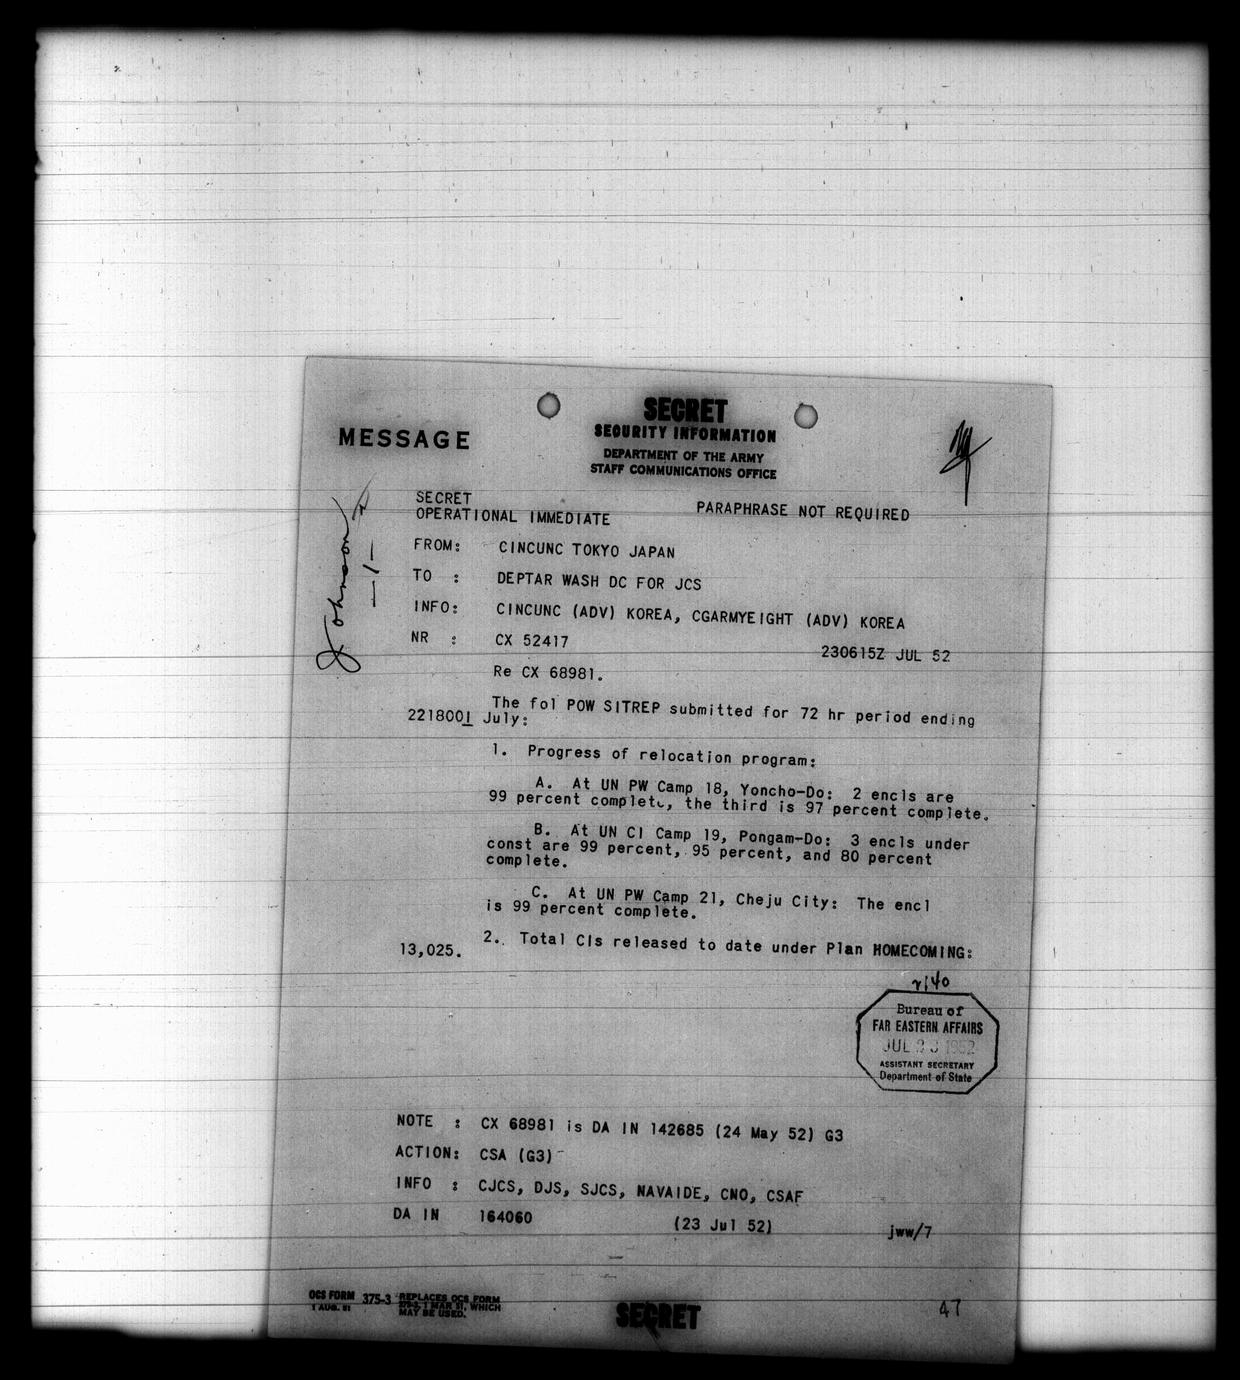 SECRET
SECURITY INFORMATION
MESSAGE
DEPARTMENT OF THE ARMY
STAFF COMMUNICATIONS OFFICE
SECRET
OPERATIONAL IMMEDIATE
PARAPHRASE NOT REQUIRED
Johnson
—1—
FROM: CINCUNC TOKYO JAPAN
TO : DEPTAR WASH DC FOR JCS
INFO: CINCUNC (ADV) KOREA, CGARMYEIGHT (ADV) KOREA
NR : CX 52417
230615Z JUL 52
Re CX 68981.
The fol POW SITREP submitted for 72 hr period ending
221800I July:
1. Progress of relocation program:
A. At UN PW Camp 18, Yoncho-Do: 2 encls are
99 percent complete, the third is 97 percent complete.
B. At UN CI Camp 19, Pongam-Do: 3 encls under
const are 99 percent, 95 percent, and 80 percent
complete.
C. At UN PW Camp 21, Cheju City: The encl
is 99 percent complete.
2. Total CIs released to date under Plan HOMECOMING:
13,025.
Bureau of
FAR EASTERN AFFAIRS
JUL 1952
ASSISTANT SECRETARY
Department of State
NOTE : CX 68981 is DA IN 142685 (24 May 52) G3
ACTION: CSA (G3)
INFO : CJCS, DJS, SJCS, NAVAIDE, CNO, CSAF
DA IN 164060 (23 Jul 52) jww/7
OCS FORM 375-3 REPLACES OCS FORM
1 AUG. 51 375-3, 1 MAR 51, WHICH
MAY BE USED.
SECRET
47